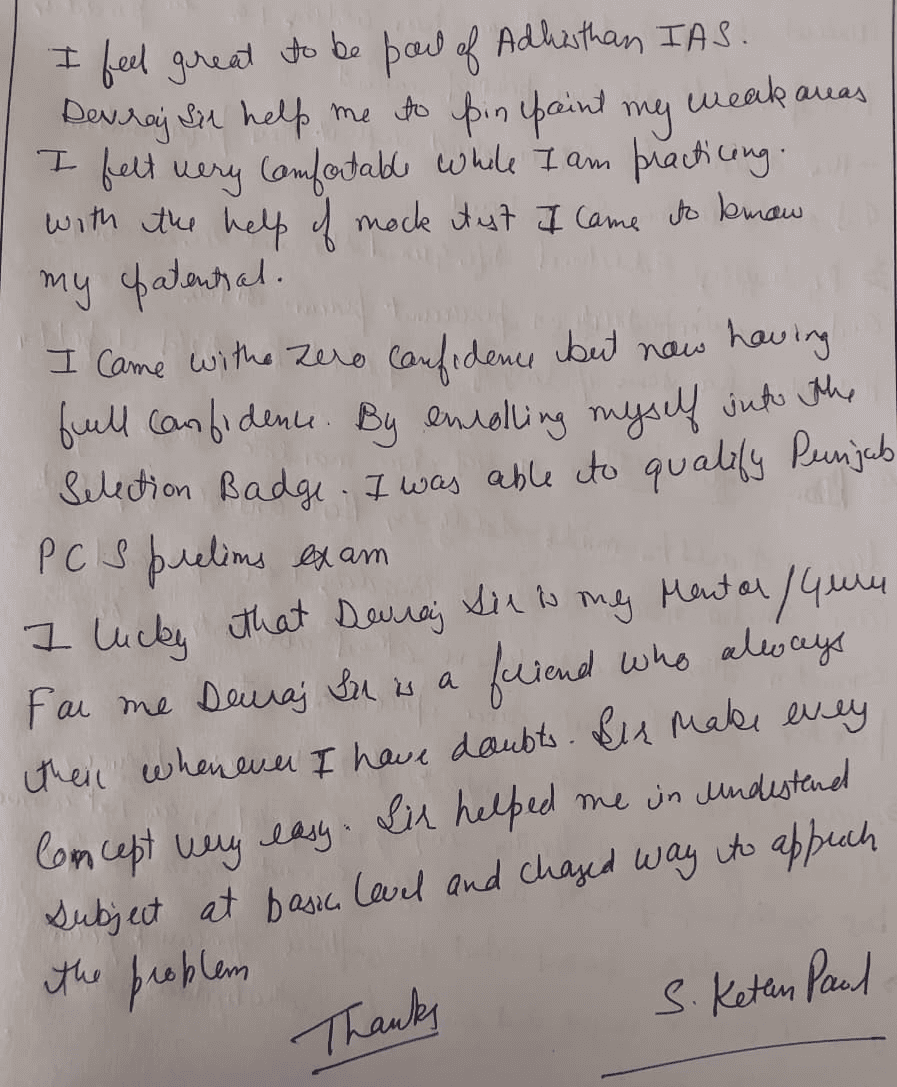 I feel great to be part of Adhisthan IAS.
Devraj Sir help me to pin paint my weak areas
I felt very Comfortable while I am practicing.
with the help of mock test I Came to know
my potential.
I Came withe Zero Confidence but now having
full Confidence. By enrolling myself into the
Selection Badge. I was able to qualify Punjab
PCS prelims exam
I lucky that Devraj Sir is my Mentor/Guru
For me Devraj Sir is a friend who always
their whenever I have doubts. Sir Make every
Concept very easy. Sir helped me in understend
subject at basic level and chazed way to appruch
the problem
Thanks
S. Ketan Paul